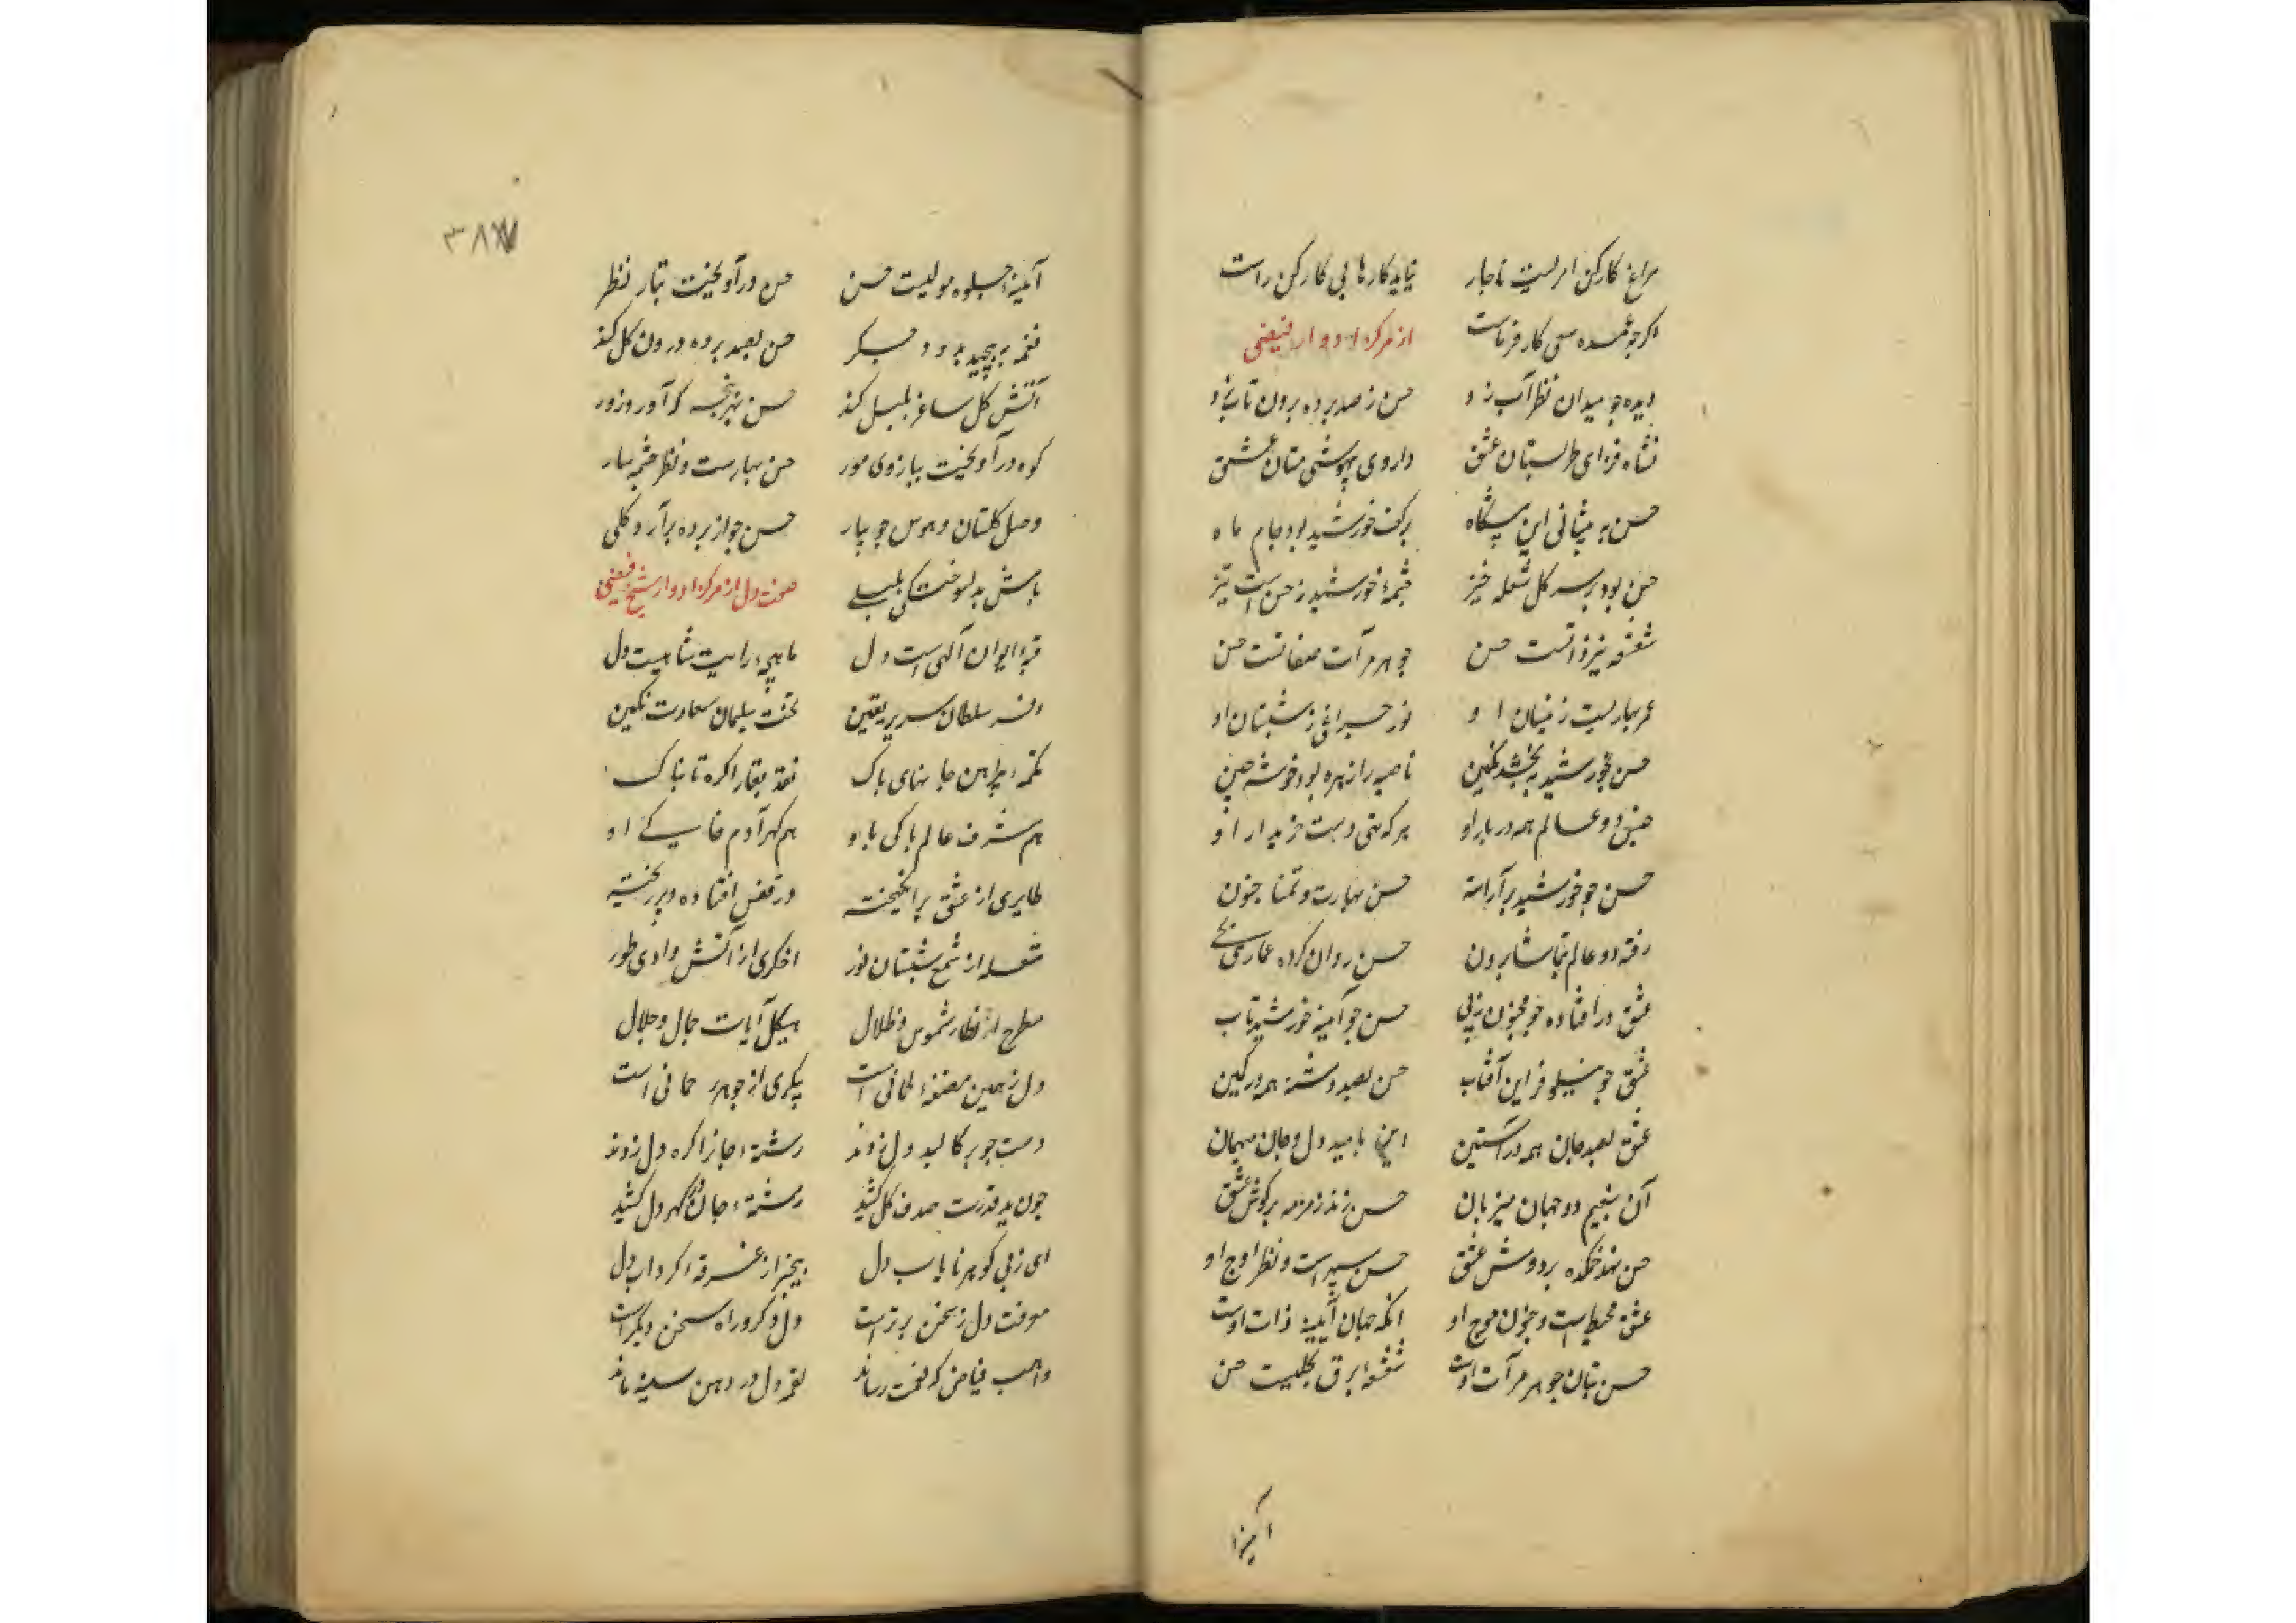 سراغ کارکن امریست ناچار نیاید کارها بی کارکن راست
اگرچه عمده سعی کارفرماست از مرکز ادوار فیضی
دیده چو میدان نظر آب زد حسن ز صد پرده برون تاب زد
نشاه فزای طربستان عشق داروی بیهوشی مستان عشق
حسن به پیشانی این پیشگاه بر کف خورشید بود جام ماه
حسن بود بر سر کل شعله خیز چشمهٔ خورشید ز حسن است تیز
شعشعه نیر ذاتست حسن جوهر مرآت صفاتست حسن
عمر بهاریست ز او نور چراغی ز شبستان او
حسن بخورشید ببخشد نگین ناصیه را زهره بود خوشه چین
جنس دو عالم همه در بار او هر که هستی است خریدار او
حسن چو خورشید بر آراسته حسن بهارست و تمنا جنون
رفته دو عالم بتماشا برون حسن روان کرده عماری بحی
عشق در افتاده چو مجنون ز پی حسن چو آیینه خورشید تاب
عشق چو نیلوفر این آفتاب حسن بصد دشنه همه در کمین
عشق بصد جان همه در آستین این بامید دل و جان میهمان
آن بنعیم دو جهان میزبان حسن زند زمزمه بر گوش عشق
حسن نهد غمکده بر دوش عشق حسن سپهر است و نظر اوج او
عشق محیط است و جنون موج او آنکه جهان آیینه ذات اوست
حسن بتان جوهر مرآت اوست شعشعه برق تجلیست حسن
آیینه
٣٨٧
آیینهٔ جلوه مولیست حسن حسن در آویخت بتار نظر
نغمه به پیچید به دود جگر حسن بصد پرده درون کل کند
آتش کل ساغر بلبل کند حسن بهر پنجه که آورد زور
کوه در آویخت ببازوی مور حسن بهارست و نظر چشمه سار
وصل کلستان و هوس جویبار حسن چو از پرده بر آرد کلی
باش بدلسوختگی بلبلی صفت دل از مرکز ادوار شیخ فیضی
قبهٔ ایوان آلهی است دل ماهچهٔ رایت شاهیست دل
افسر سلطان سریر یقین تخت سلیمان سعادت نگین
تکمهٔ پیراهن جانهای پاک نقد بقا را کره تابناک
هم شرف عالم پاکی باو هم کهر آدم خاکی او
طایری از عشق بر انگیخته در قفس افتاده و پر ریخته
شعله از شمع شبستان نور اخگری از آتش وادی طور
مطرح انظار شموس و ظلال هیکل آیات جمال و جلال
دل ز همین مضغهٔ است پیکری از جوهر است
دست چو بر کالبد دل زدند رشتهٔ جانرا کره دل زدند
چون ید قدرت صدف کل کشید رشتهٔ جان در کهر دل کشید
ای ز پی کوهر نایاب دل بیخبر از غرقه کرداب دل
معرفت دل ز سخن برتر است دل دکر و راه سخن دیگر است
واهب فیاض که نعمت رساند لقمه دل در دهن سینه ماند